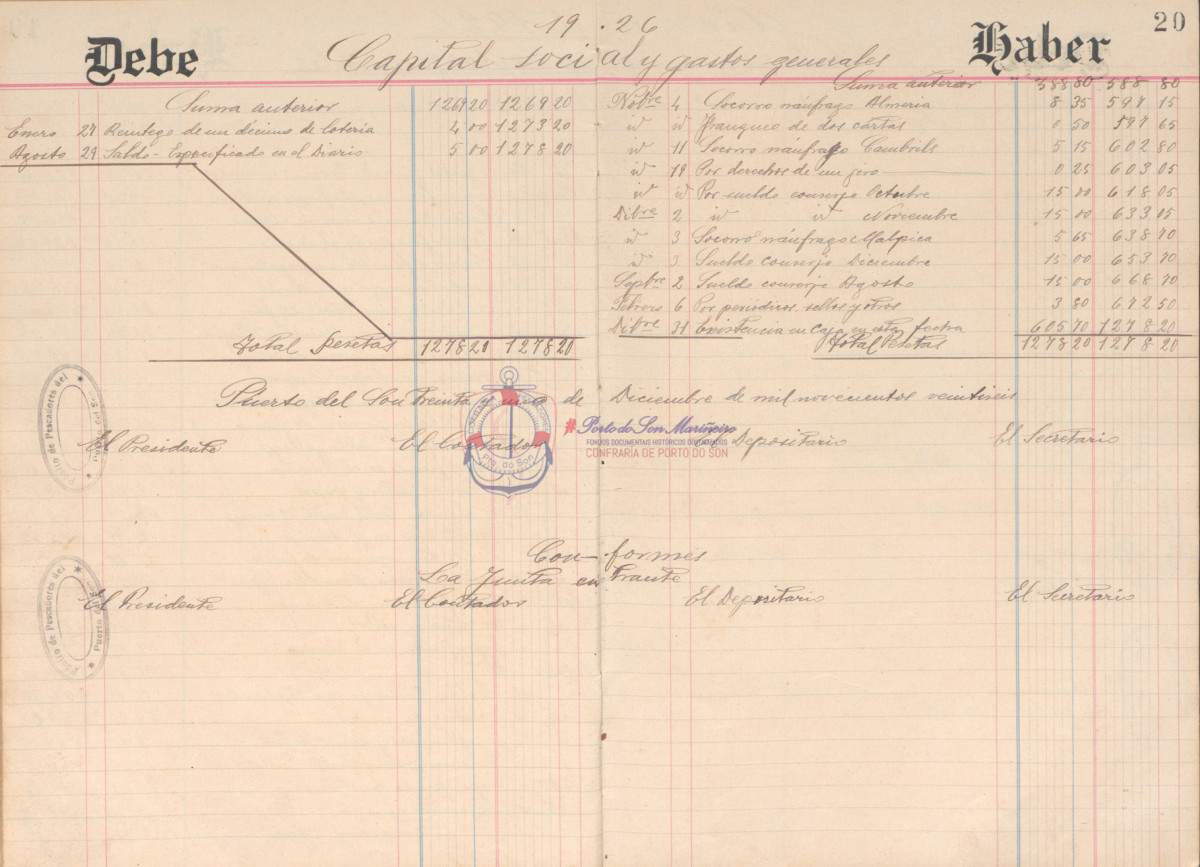 19 26
20
Debe
Capital social y gastos generales
Haber
Suma anterior 1269 20 1269 20
Enero 27 Reintego de un décimo de loteria 4 00 1273 20
Agosto 29 Saldo - Especificado en el Diario 5 00 1278 20
Total pesetas 1278 20 1278 20
Suma anterior 588 80 588 80
Nobre 4 Socorro náufrago Almeria 8 35 597 15
id id Franqueo de dos cartas 0 50 597 65
id 11 Socorro naufrago Cambrils 5 15 602 80
id 19 Por derechos de un jiro 0 25 603 05
id id Por sueldo conserje Octubre 15 00 618 05
Dibre 2 id id Noviembre 15 00 633 05
id 3 Socorro náufrago Malpica 5 65 638 70
id 3 Sueldo conserje Diciembre 15 00 653 70
Septre 2 Sueldo conserje Agosto 15 00 668 70
Febrero 6 Por periódicos sellos y otros 3 80 672 50
Dibre 31 Existencia en Caja en esta fecha 605 70 1278 20
Total Pesetas 1278 20 1278 20
Puerto del Son treinta y uno de Diciembre de mil novecientos veintiseis
El Presidente El Contador El Depositario El Secretario
Pósito de Pescadores del
Pto. do Son
#Porto do Son Mariñeiro
FONDOS DOCUMENTAIS HISTÓRICOS DIXITALIZADOS
CONFRARÍA DE PORTO DO SON
Conformes
La Junta entrante
El Presidente El Contador El Depositario El Secretario
Pósito de Pescadores del